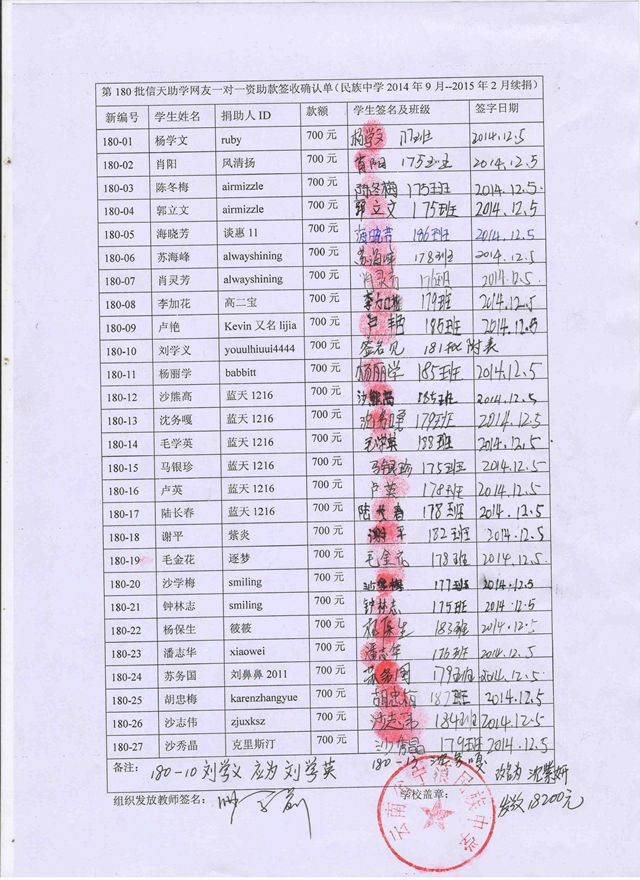 第180批信天助学网友一对一资助款签收确认单(民族中学2014年9月--2015年2月续捐)
新编号 学生姓名 捐助人ID 款额 学生签名及班级 签字日期
180-01 杨学文 ruby 700元 杨学文 177班 2014.12.5
180-02 肖阳 风清扬 700元 肖阳 175班 2014.12.5
180-03 陈冬梅 airmizzle 700元 陈冬梅 175班 2014.12.5
180-04 郭立文 airmizzle 700元 郭立文 175班 2014.12.5
180-05 海晓芳 谈惠11 700元 海晓芳 186班 2014.12.5
180-06 苏海峰 alwayshining 700元 苏海峰 178班 2014.12.5
180-07 肖灵芳 alwayshining 700元 肖灵芳 176班 2014.12.5
180-08 李加花 高二宝 700元 李加花 179班 2014.12.5
180-09 卢艳 Kevin又名lijia 700元 卢艳 185班 2014.12.5
180-10 刘学义 youulhiuui4444 700元 签名见 181批附表
180-11 杨丽学 babbitt 700元 杨丽学 185班 2014.12.5
180-12 沙熊高 蓝天1216 700元 沙熊高 185班 2014.12.5
180-13 沈务嘎 蓝天1216 700元 沈务嘎 179班 2014.12.5
180-14 毛学英 蓝天1216 700元 毛学英 188班 2014.12.5
180-15 马银珍 蓝天1216 700元 马银珍 175班 2014.12.5
180-16 卢英 蓝天1216 700元 卢英 178班 2014.12.5
180-17 陆长春 蓝天1216 700元 陆长春 178班 2014.12.5
180-18 谢平 紫炎 700元 谢平 182班 2014.12.5
180-19 毛金花 逐梦 700元 毛金花 178班 2014.12.5
180-20 沙学梅 smiling 700元 沙学梅 177班 2014.12.5
180-21 钟林志 smiling 700元 钟林志 175班 2014.12.5
180-22 杨保生 筱筱 700元 杨保生 183班 2014.12.5
180-23 潘志华 xiaowei 700元 潘志华 176班 2014.12.5
180-24 苏务国 刘鼻鼻2011 700元 苏务国 179班 2014.12.5
180-25 胡忠梅 karenzhangyue 700元 胡忠梅 187班 2014.12.5
180-26 沙志伟 zjuxksz 700元 沙志伟 184班 2014.12.5
180-27 沙秀晶 克里斯汀 700元 沙秀晶 179班 2014.12.5
备注: 180-10 刘学义 应为 刘学英 180-13 沈务嘎 改为 沈紫妍
组织发放教师签名: 学校盖章: 发款18200元
云南省宁蒗民族中学